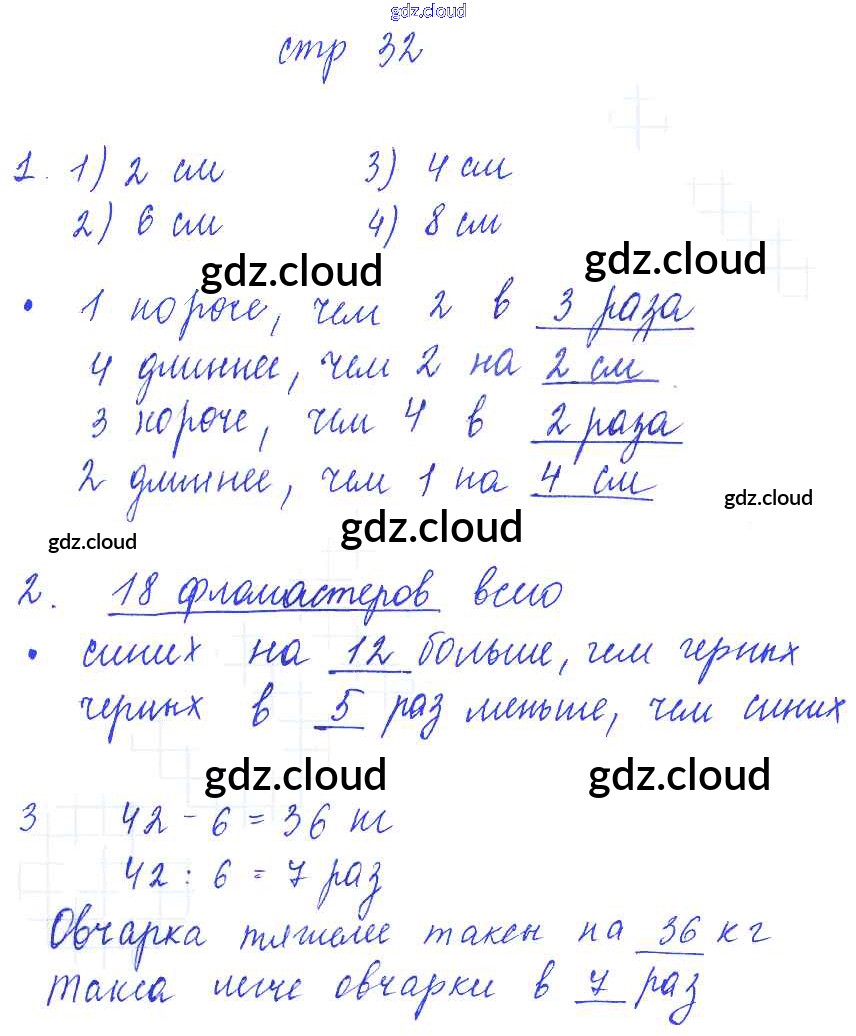 gdz.cloud
стр 32
1. 1) 2 см 3) 4 см
2) 6 см 4) 8 см
gdz.cloud gdz.cloud
• 1 короче, чем 2 в 3 раза
4 длиннее, чем 2 на 2 см
3 короче, чем 4 в 2 раза
2 длиннее, чем 1 на 4 см
gdz.cloud gdz.cloud gdz.cloud
2. 18 фломастеров всего
• синих на 12 больше, чем черных
черных в 5 раз меньше, чем синих
gdz.cloud gdz.cloud
3 42 - 6 = 36 кг
42 : 6 = 7 раз
Овчарка тяжелее таксы на 36 кг
Такса легче овчарки в 7 раз